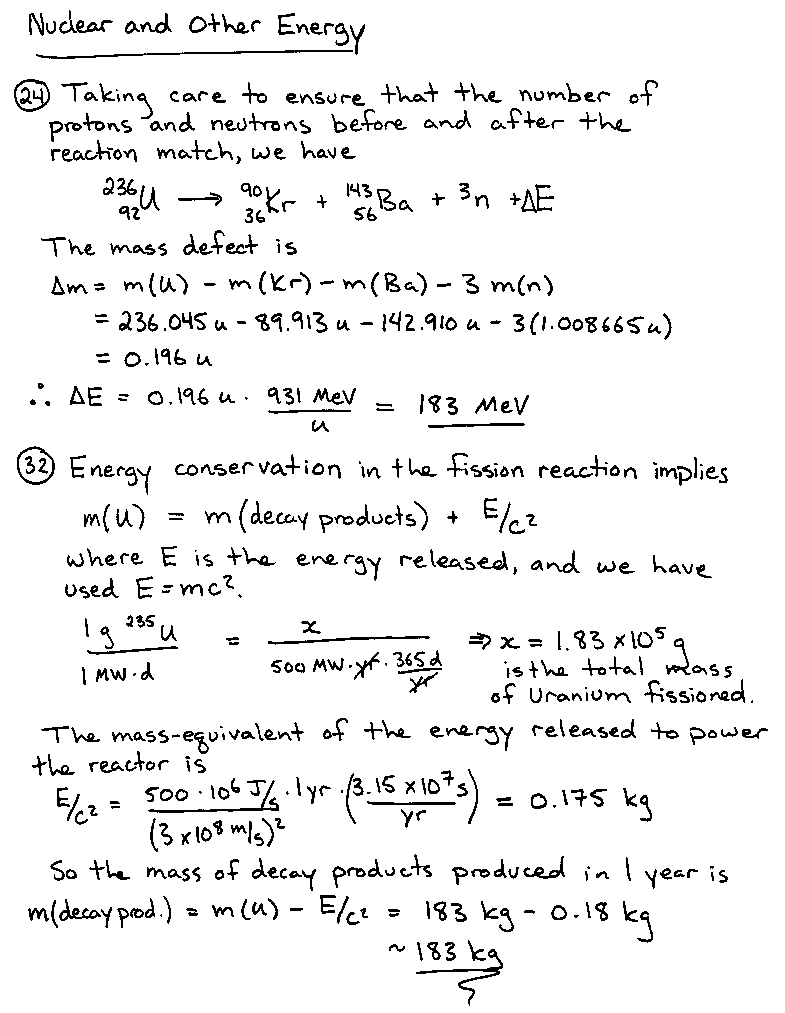 Nuclear and Other Energy
(24) Taking care to ensure that the number of
protons and neutrons before and after the
reaction match, we have
²³⁶₉₂U → ⁹⁰₃₆Kr + ¹⁴³₅₆Ba + ³n + ΔE
The mass defect is
Δm = m(U) - m(Kr) - m(Ba) - 3 m(n)
= 236.045 u - 89.913 u - 142.910 u - 3(1.008665 u)
= 0.196 u
∴ ΔE = 0.196 u · 931 MeV/u = 183 MeV
(32) Energy conservation in the fission reaction implies
m(U) = m(decay products) + E/c²
where E is the energy released, and we have
used E = mc².
1 g ²³⁵U / 1 MW·d = x / 500 MW·yr · 365 d/yr ⇒ x = 1.83 × 10⁵ g
is the total mass
of Uranium fissioned.
The mass-equivalent of the energy released to power
the reactor is
E/c² = 500 · 10⁶ J/s · 1 yr · (3.15 × 10⁷ s / yr) / (3 × 10⁸ m/s)² = 0.175 kg
So the mass of decay products produced in 1 year is
m(decay prod.) = m(U) - E/c² = 183 kg - 0.18 kg
~ 183 kg